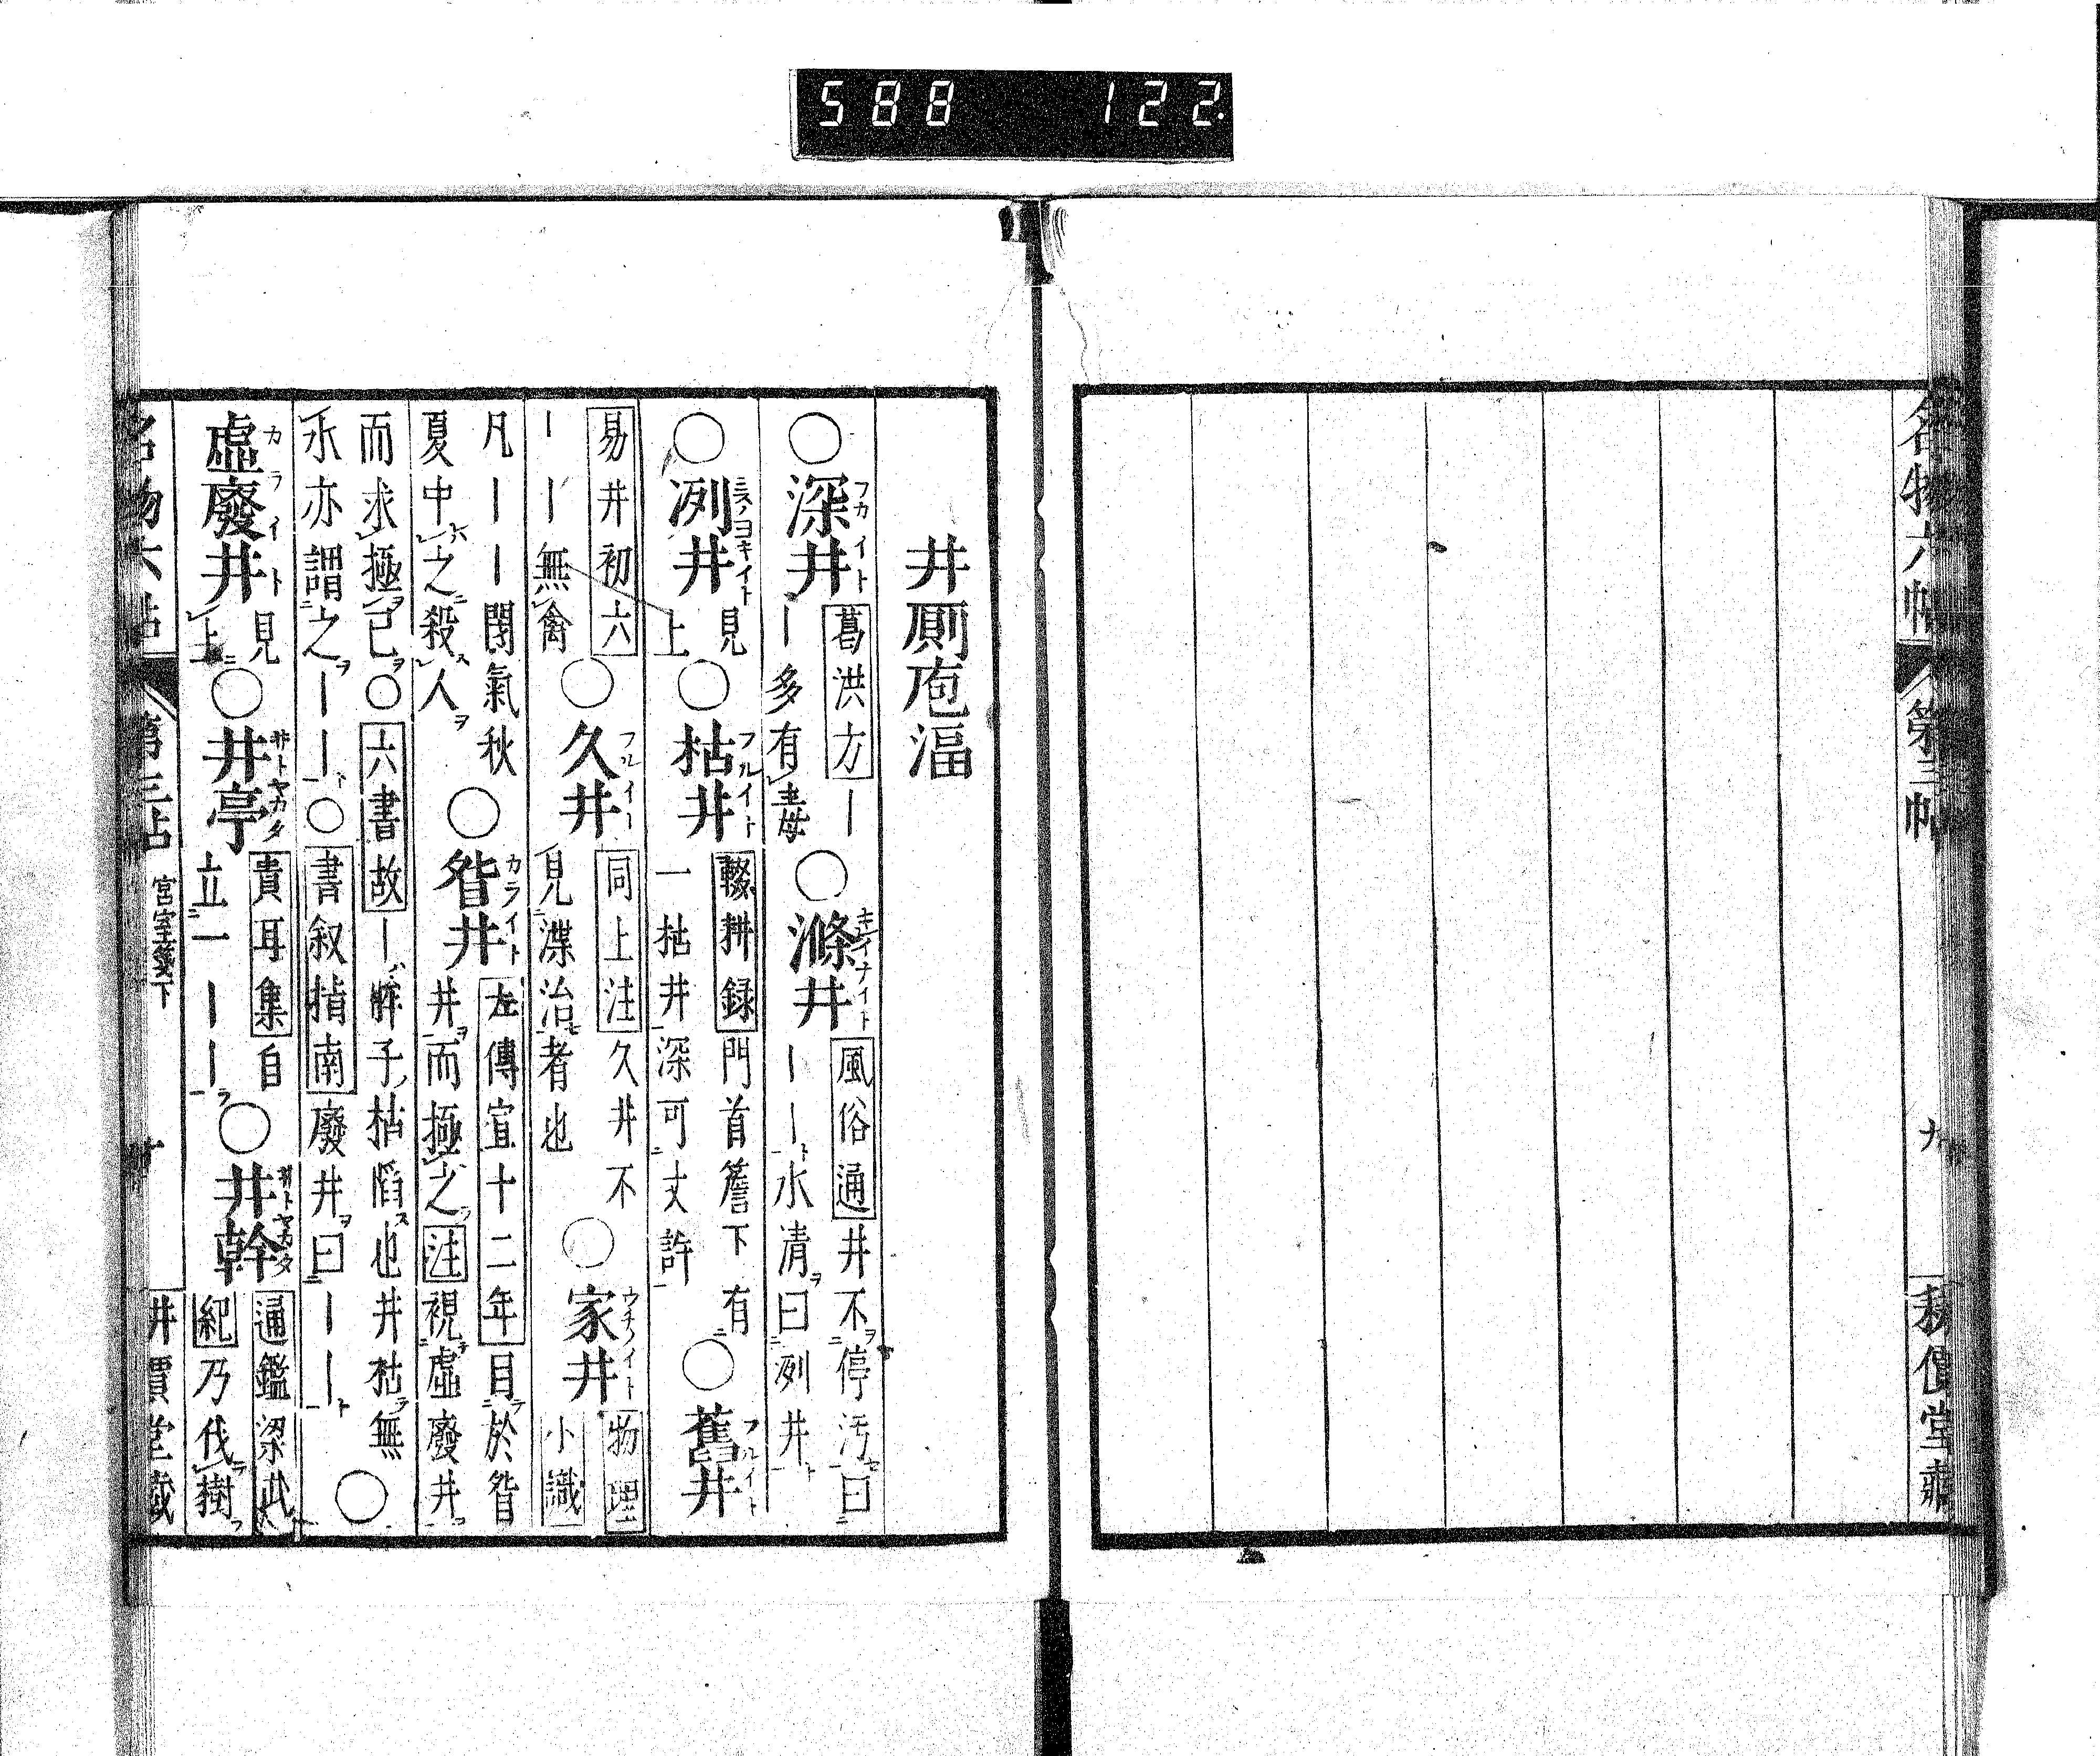 588 122
名物六帖 第三帖 九
井厠庖湢
○深井 フカイト 葛洪方｜
｜多有毒
○滌井 キレイナイト 風俗通井不停汚曰
｜｜水清曰冽井
○冽井 ミヅノヨキイト 見
上
○枯井 フルイト 輟耕録門首簷下有
一枯井深可丈許
○舊井 フルイト
易井初六
｜｜無禽
○久井 フルイ｜ 同上注久井不
見渫治者也
○家井 ウチノイト 物理
小識
凡｜｜閉氣秋
夏中之殺人
○眢井 カライト 左傳宣十二年目於眢
井而拯之注視虛廢井
而求拯己○六書故｜眸子枯陷也井枯無
水亦謂之｜｜○書叙指南廢井曰｜｜
○
虛廢井 カライト 見
上
○井亭 井トヤカタ 貴耳集自
立一｜｜
○井幹 井トヤカタ 通鑑梁武
紀乃伐樹
名物六帖 第三帖 宮室箋下 十